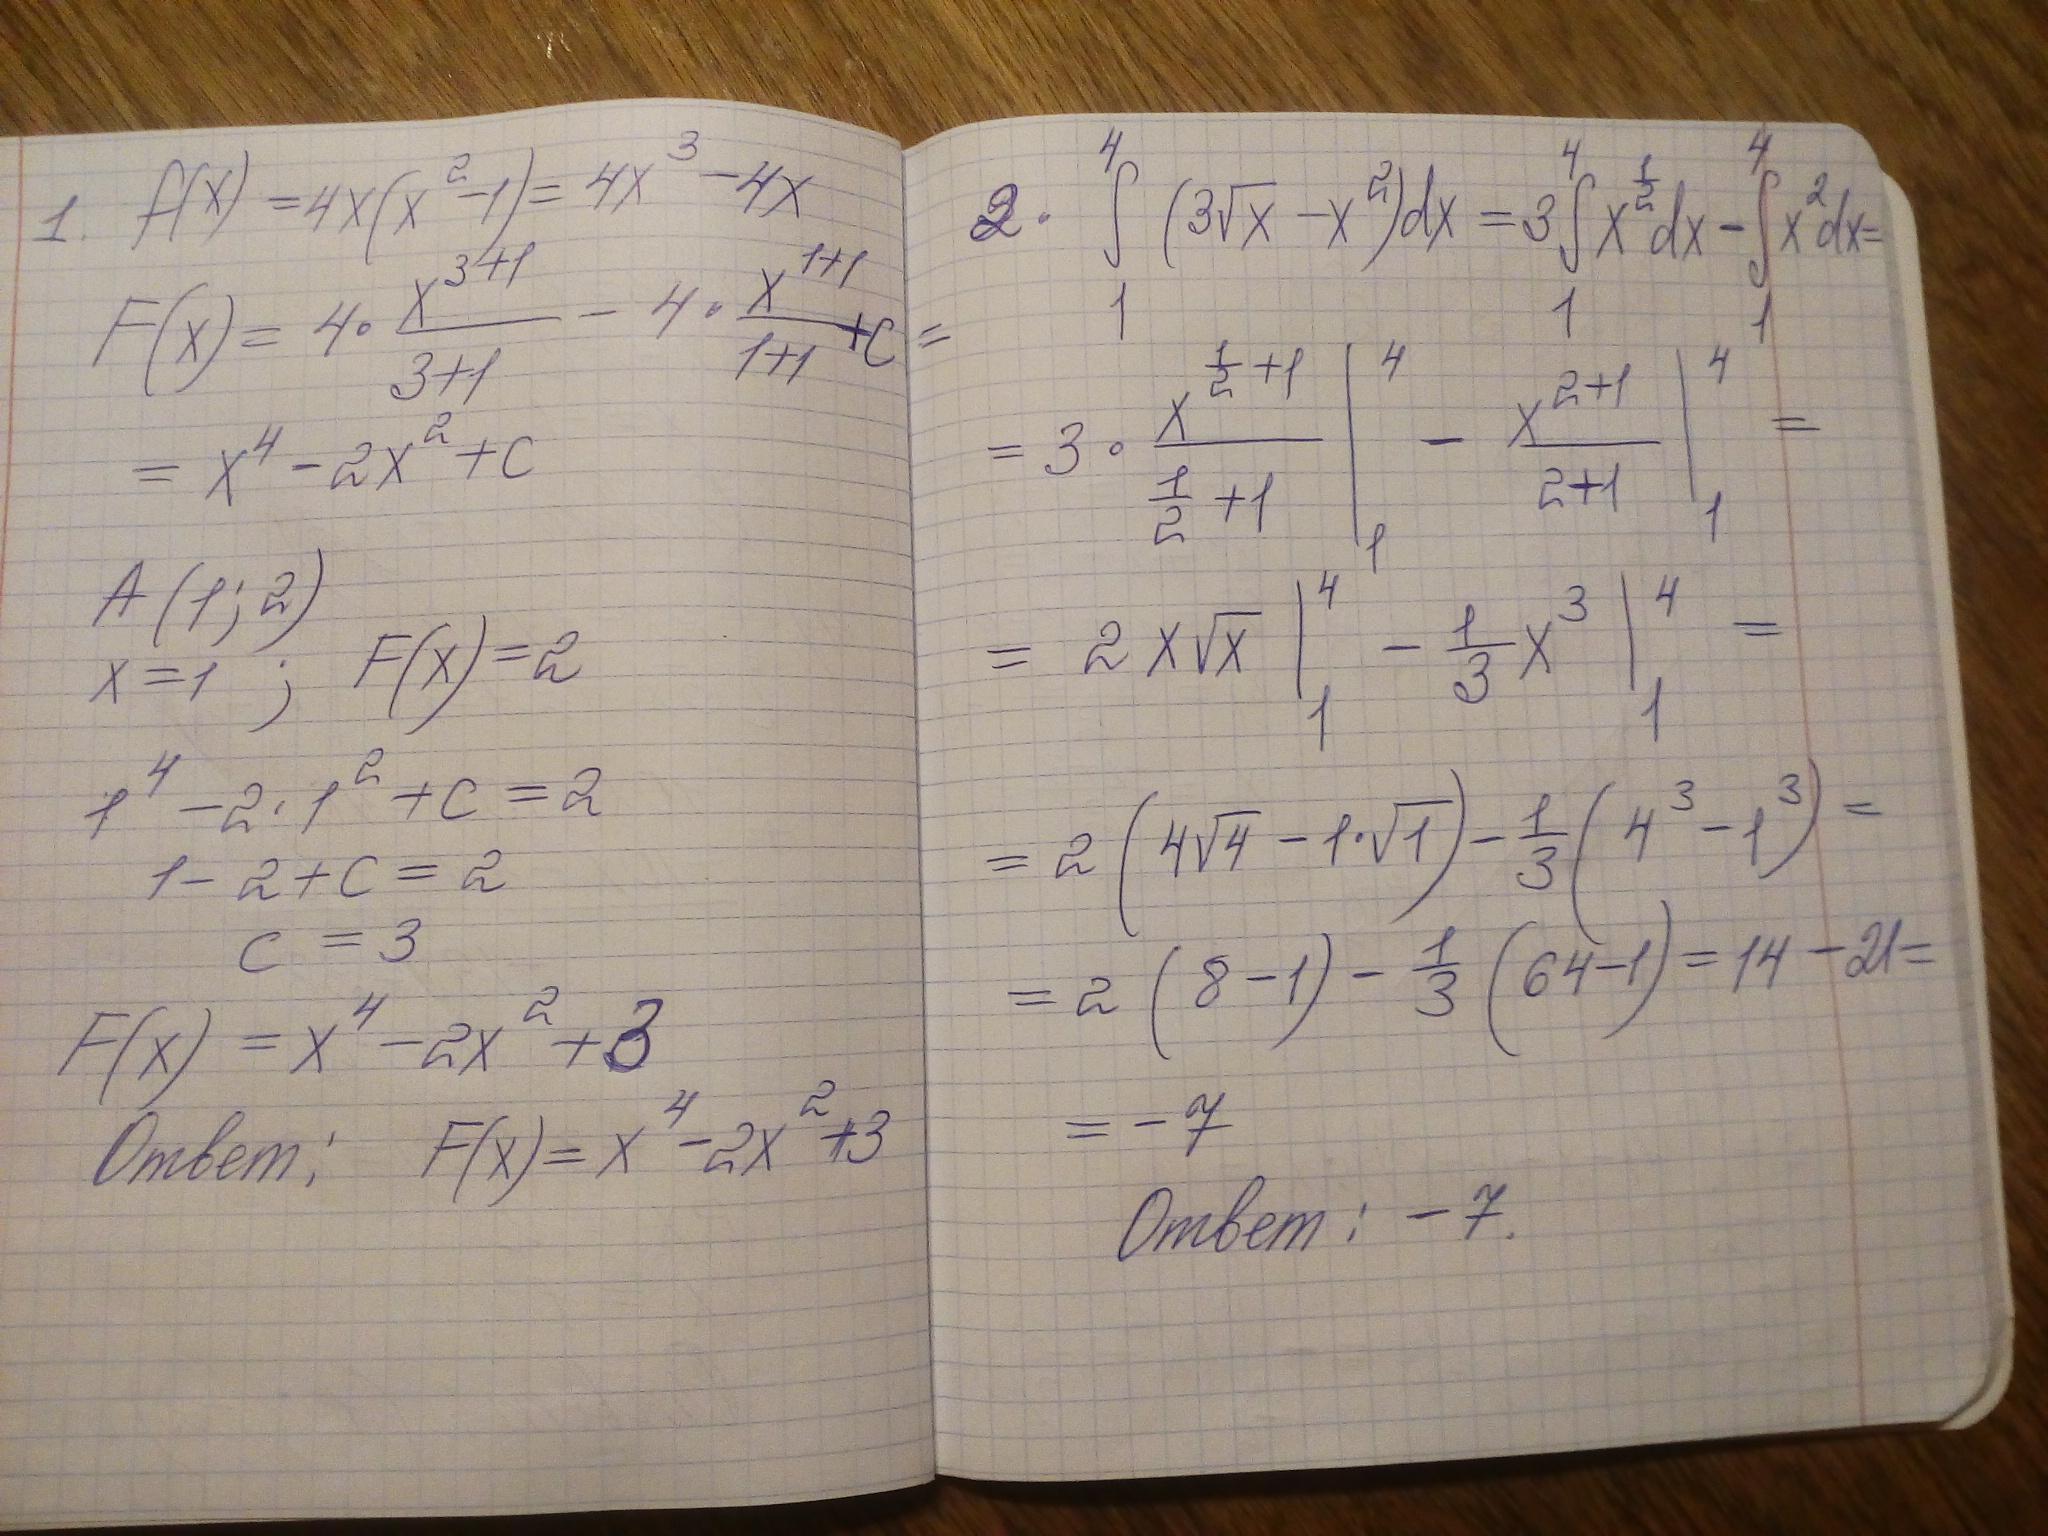 1. f(x) = 4x(x²-1) = 4x³ - 4x
F(x) = 4 · x^(3+1)/(3+1) - 4 · x^(1+1)/(1+1) + C =
= x⁴ - 2x² + C
A(1; 2)
x = 1 ; F(x) = 2
1⁴ - 2 · 1² + C = 2
1 - 2 + C = 2
C = 3
F(x) = x⁴ - 2x² + 3
Ответ: F(x) = x⁴ - 2x² + 3
2. ∫₁⁴ (3√x - x²)dx = 3∫₁⁴ x^(1/2) dx - ∫₁⁴ x² dx =
= 3 · x^(1/2+1)/(1/2+1) |₁⁴ - x^(2+1)/(2+1) |₁⁴ =
= 2x√x |₁⁴ - 1/3 x³ |₁⁴ =
= 2(4√4 - 1·√1) - 1/3(4³ - 1³) =
= 2(8 - 1) - 1/3(64 - 1) = 14 - 21 =
= -7
Ответ: -7.